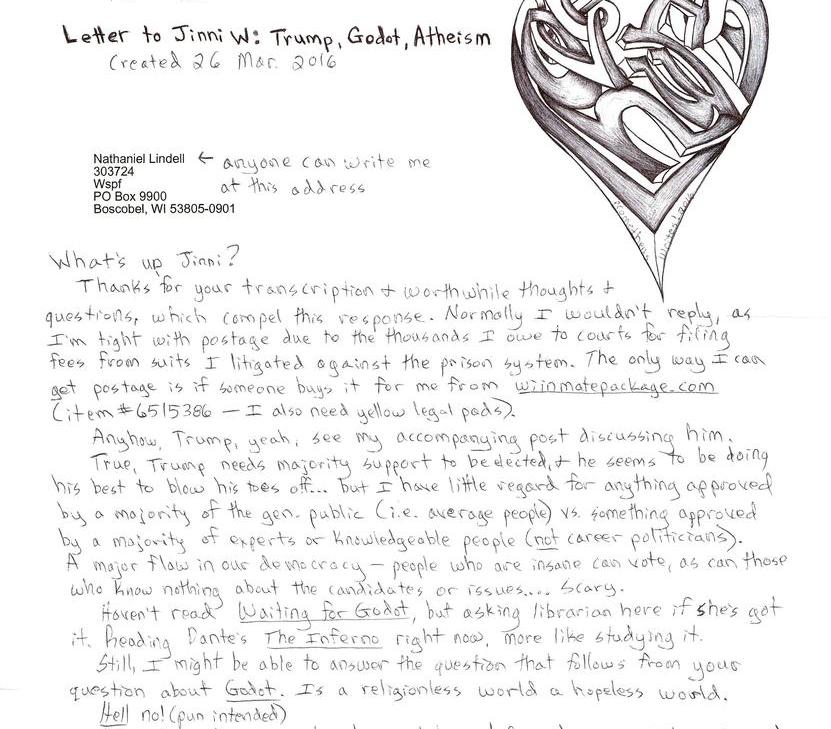 Letter to Jinni W: Trump, Godot, Atheism
Created 26 Mar. 2016
Nathaniel Lindell ← anyone can write me
303724
Wspf at this address
PO Box 9900
Boscobel, WI 53805-0901
What's up Jinni?
Thanks for your transcription + worthwhile thoughts +
questions, which compel this response. Normally I wouldn't reply, as
I'm tight with postage due to the thousands I owe to courts for filing
fees from suits I litigated against the prison system. The only way I can
get postage is if someone buys it for me from wiinmatepackage.com
(item #6515386 — I also need yellow legal pads).
Anyhow, Trump, yeah, see my accompanying post discussing him.
True, Trump needs majority support to be elected, + he seems to be doing
his best to blow his toes off... but I have little regard for anything approved
by a majority of the gen. public (i.e. average people) vs. something approved
by a majority of experts or knowledgeable people (not career politicians).
A major flaw in our democracy — people who are insane can vote, as can those
who know nothing about the candidates or issues.... Scary.
Haven't read Waiting for Godot, but asking librarian here if she's got
it. Reading Dante's The Inferno right now, more like studying it.
Still, I might be able to answer the question that follows from your
question about Godot. Is a religionless world a hopeless world.
Hell no! (pun intended)